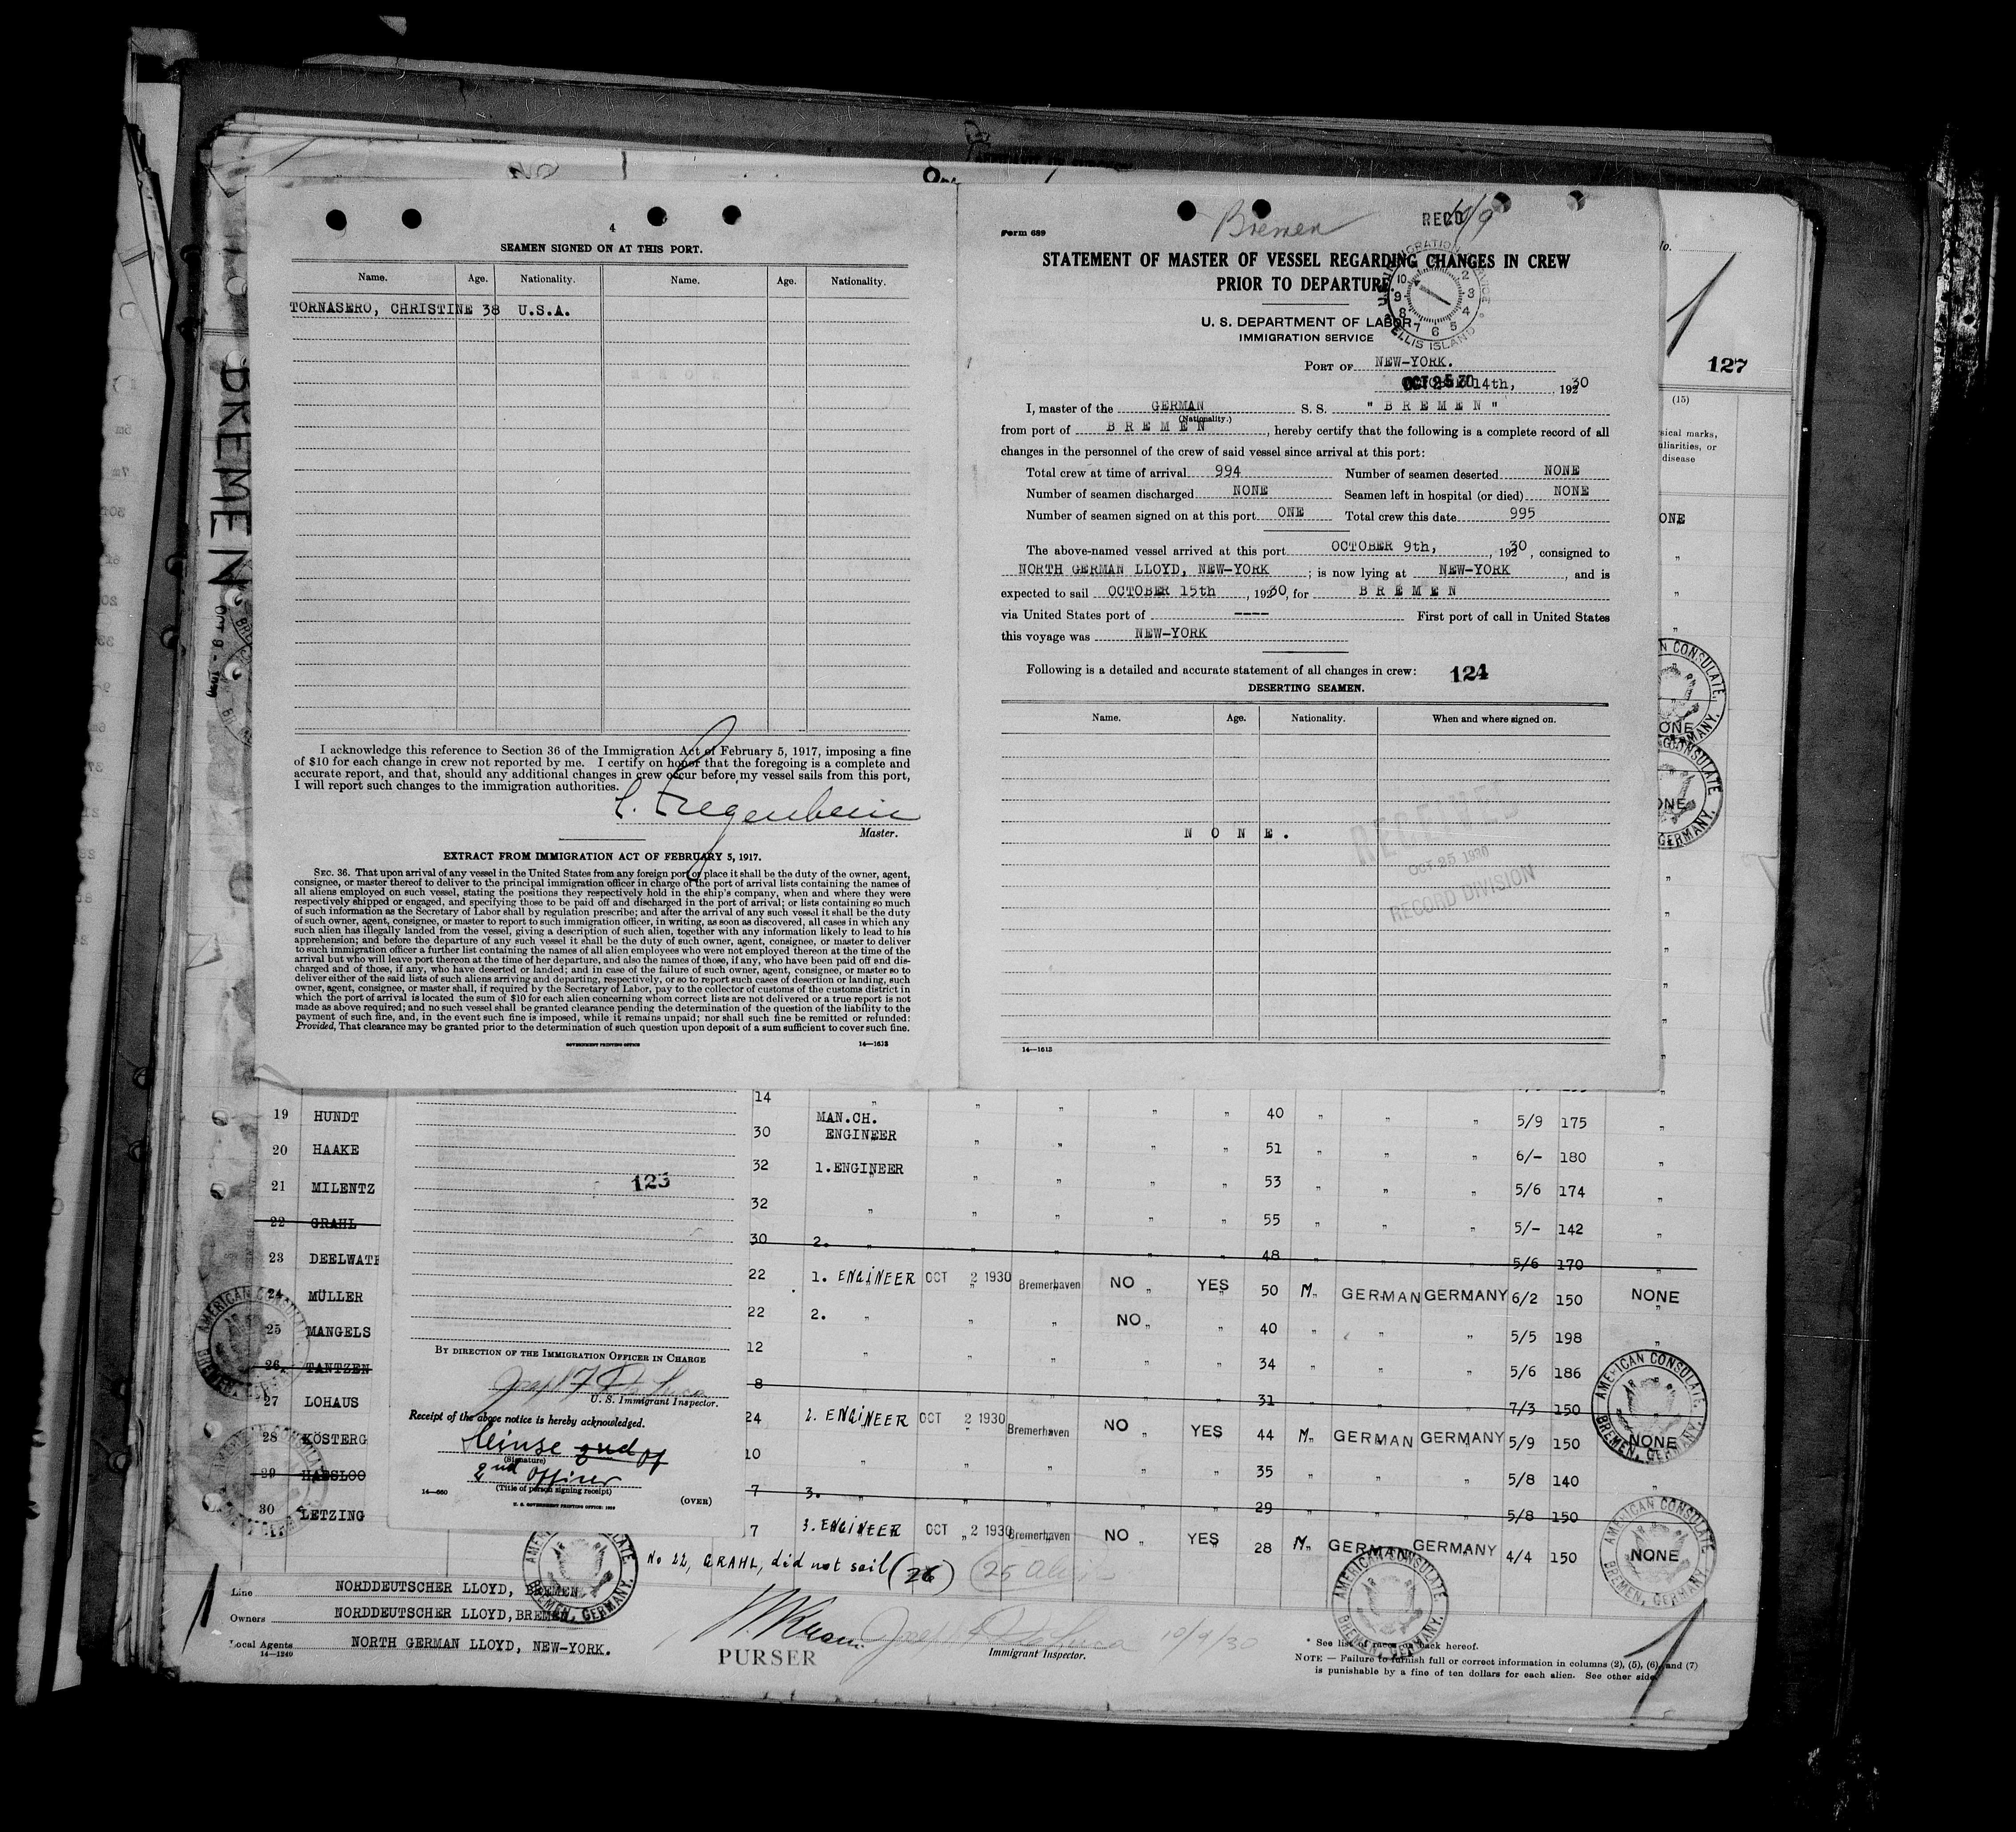 4
SEAMEN SIGNED ON AT THIS PORT.
Name. Age. Nationality. Name. Age. Nationality.
TORNASERO, CHRISTINE 38 U.S.A.
I acknowledge this reference to Section 36 of the Immigration Act of February 5, 1917, imposing a fine
of $10 for each change in crew not reported by me. I certify on honor that the foregoing is a complete and
accurate report, and that, should any additional changes in crew occur before my vessel sails from this port,
I will report such changes to the immigration authorities.
Master.
EXTRACT FROM IMMIGRATION ACT OF FEBRUARY 5, 1917.
SEC. 36. That upon arrival of any vessel in the United States from any foreign port or place it shall be the duty of the owner, agent,
consignee, or master thereof to deliver to the principal immigration officer in charge of the port of arrival lists containing the names of
all aliens employed on such vessel, stating the positions they respectively hold in the ship's company, when and where they were
respectively shipped or engaged, and specifying those to be paid off and discharged in the port of arrival; or lists containing so much
of such information as the Secretary of Labor shall by regulation prescribe; and after the arrival of any such vessel it shall be the duty
of such owner, agent, consignee, or master to report to such immigration officer, in writing, as soon as discovered, all cases in which any
such alien has illegally landed from the vessel, giving a description of such alien, together with any information likely to lead to his
apprehension; and before the departure of any such vessel it shall be the duty of such owner, agent, consignee, or master to deliver
to such immigration officer a further list containing the names of all alien employees who were not employed thereon at the time of the
arrival but who will leave port thereon at the time of her departure, and also the names of those, if any, who have been paid off and dis-
charged and of those, if any, who have deserted or landed; and in case of the failure of such owner, agent, consignee, or master so to
deliver either of the said lists of such aliens arriving and departing, respectively, or so to report such cases of desertion or landing, such
owner, agent, consignee, or master shall, if required by the Secretary of Labor, pay to the collector of customs of the customs district in
which the port of arrival is located the sum of $10 for each alien concerning whom correct lists are not delivered or a true report is not
made as above required; and no such vessel shall be granted clearance pending the determination of the question of the liability to the
payment of such fine, and, in the event such fine is imposed, while it remains unpaid; nor shall such fine be remitted or refunded:
Provided, That clearance may be granted prior to the determination of such question upon deposit of a sum sufficient to cover such fine.
GOVERNMENT PRINTING OFFICE 14—1613
Form 689 Bremen RECD
STATEMENT OF MASTER OF VESSEL REGARDING CHANGES IN CREW
PRIOR TO DEPARTURE.
U. S. DEPARTMENT OF LABOR
IMMIGRATION SERVICE
ELLIS ISLAND
PORT OF NEW-YORK.
OCT 25 30 14th, 1930
I, master of the GERMAN S. S. "BREMEN"
(Nationality.)
from port of BREMEN, hereby certify that the following is a complete record of all
changes in the personnel of the crew of said vessel since arrival at this port:
Total crew at time of arrival 994 Number of seamen deserted NONE
Number of seamen discharged NONE Seamen left in hospital (or died) NONE
Number of seamen signed on at this port ONE Total crew this date 995
The above-named vessel arrived at this port OCTOBER 9th, 19230, consigned to
NORTH GERMAN LLOYD, NEW-YORK; is now lying at NEW-YORK, and is
expected to sail OCTOBER 15th, 19230, for BREMEN
via United States port of ---- First port of call in United States
this voyage was NEW-YORK
Following is a detailed and accurate statement of all changes in crew: 124
DESERTING SEAMEN.
Name. Age. Nationality. When and where signed on.
NONE.
RECEIVED
OCT 25 1930
RECORD DIVISION
14—1613
BREMEN OCT 9 -
127
(15)
14 " " " " " 40 " " " 5/9 175 "
19 HUNDT 30 MAN.CH. ENGINEER " " " " 51 " " " 6/- 180 "
20 HAAKE 32 1.ENGINEER " " " " 53 " " " 5/6 174 "
21 MILENTZ 32 " " " " " 55 " " " 5/- 142 "
22 GRAHL 30 2. " " " " " 48 " " " 5/6 170 "
23 DEELWATE 22 1. ENGINEER OCT 2 1930 Bremerhaven NO YES 50 M. GERMAN GERMANY 6/2 150 NONE
24 MÜLLER 22 2. " " " NO " " 40 " " " 5/5 198 "
25 MANGELS 12 " " " " " 34 " " " 5/6 186 "
26 TANTZEN 8 " " " " " 31 " " " 7/3 150
27 LOHAUS 24 2. ENGINEER OCT 2 1930 Bremerhaven NO YES 44 M. GERMAN GERMANY 5/9 150 NONE
28 KÖSTERG 10 " " " " " 35 " " " 5/8 140 "
29 HASSLOO 7 3. " " " " " 29 " " " 5/8 150
30 LETZING 7 3. ENGINEER OCT 2 1930 Bremerhaven NO YES 28 M. GERMAN GERMANY 4/4 150 NONE
123
BY DIRECTION OF THE IMMIGRATION OFFICER IN CHARGE
U. S. Immigrant Inspector.
Receipt of the above notice is hereby acknowledged.
(Signature)
2nd Officer
(Title of person signing receipt)
14—660 U. S. GOVERNMENT PRINTING OFFICE: (OVER)
No 22, GRAHL, did not sail (26)
AMERICAN CONSULATE
BREMEN, GERMANY.
Line NORDDEUTSCHER LLOYD, BREMEN
Owners NORDDEUTSCHER LLOYD, BREMEN
Local Agents NORTH GERMAN LLOYD, NEW-YORK.
14—1240
PURSER
Immigrant Inspector.
10/9/30
* See list of races on back hereof.
NOTE — Failure to furnish full or correct information in columns (2), (5), (6), and (7)
is punishable by a fine of ten dollars for each alien. See other side.